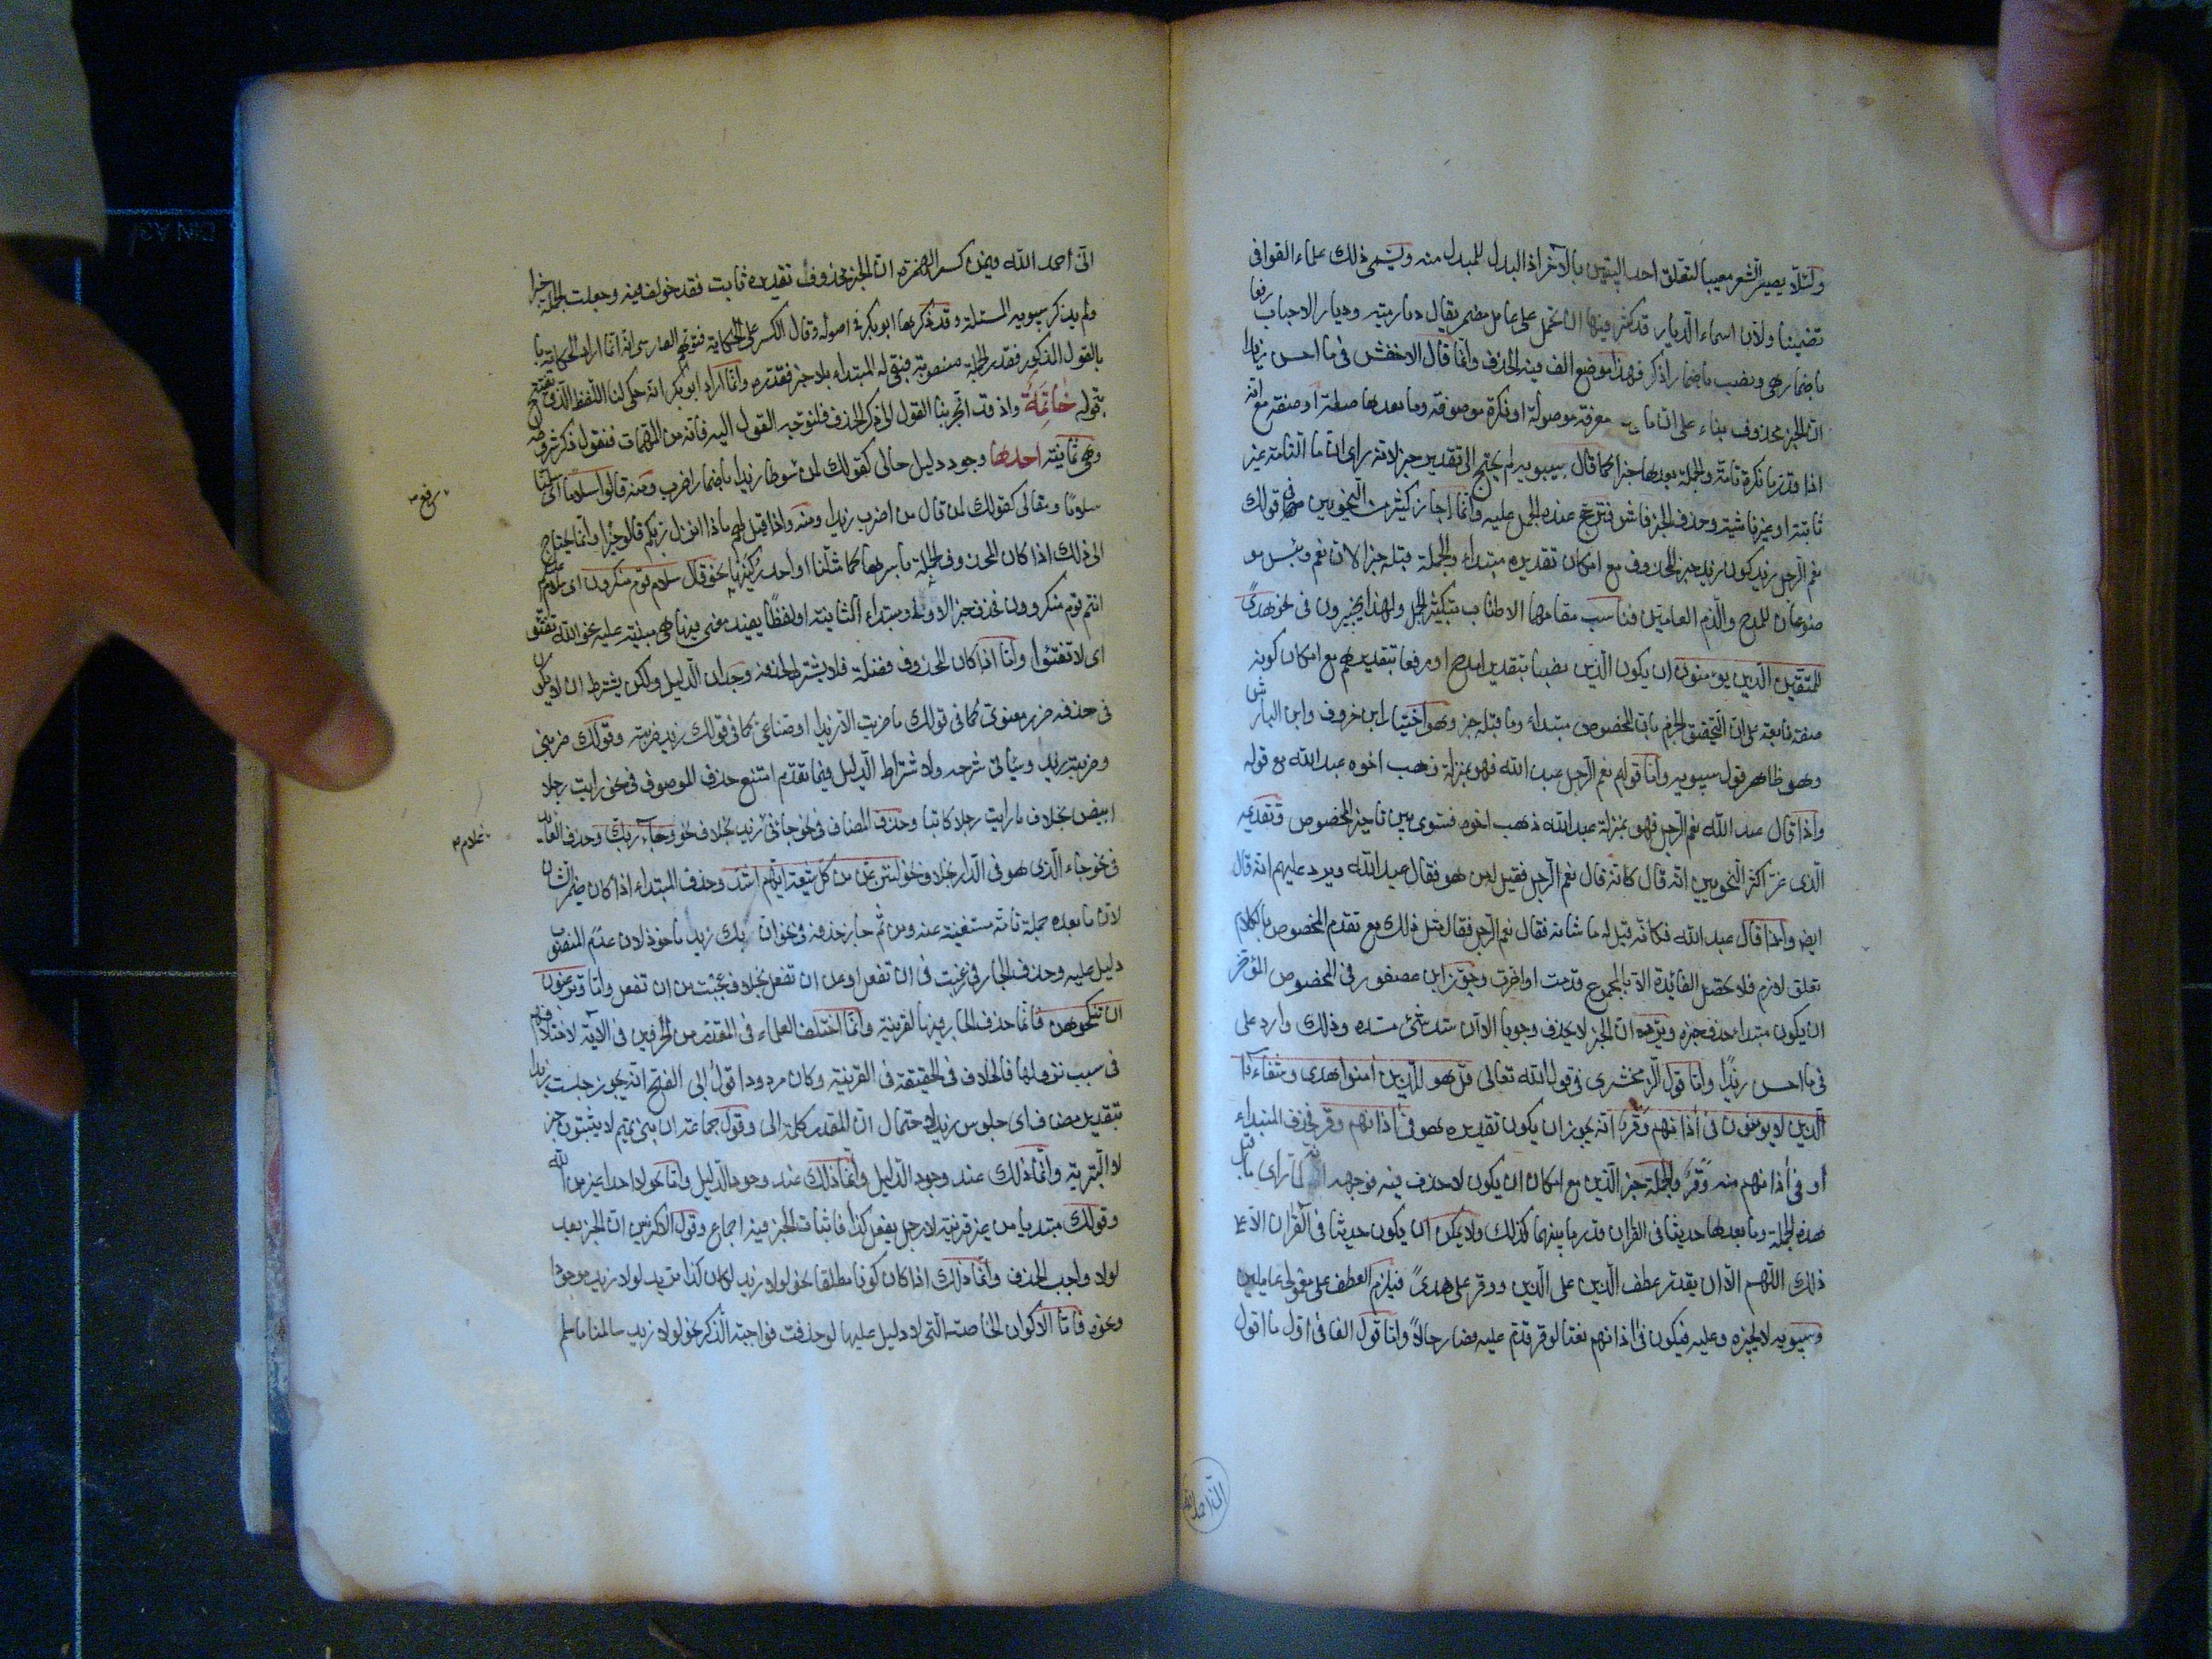 ولئلّا يصير الشعر معيبا لتعلق احد البيتين بالآخر اذ البدل للمبدل منه ويسمى ذلك علماء القوافى
تضمينا ولان اسماء الديار قد كثر فيها ان تحمل على عامل مضمر يقال ديار ميته وديار الاحباب رفعا
باضمار هى ونصب باضمار اذكر فهذا موضع الف فيه الحذف وانّما قال الاخفش فى ما احسن زيدا
ان الخبر محذوف بناء على ان ما معرفة موصولة او نكرة موصوفة وما بعدها صلة او صفة مع انه
اذا قدر ما نكرة تامّة والجملة بعدها خبرا كما قال سيبويه لم يحتج الى تقدير خبر لانه راى ان ما التامّة غير
ثابتة او غير فاشية وحذف الخبر فاش فترجح عنده الحمل عليه وانّما اجاز كثير من النحويين فى نحو قولك
نعم الرجل زيد كون زيد خبر المحذوف مع امكان تقديره مبتداء والجملة قبله خبرا لان نعم وبئس مو
ضوعان للمدح والذم العامين فناسب مقامهما الاطناب بتكثير الجمل ولهذا يجيزون فى نحو هدًى
للمتقين الذين يؤمنون ان يكون الذين نصبا بتقدير امدح او رفعا بتقدير هم مع امكان كونه
صفة تابعة على ان التحقيق الجزم بان المخصوص مبتداء وما قبله خبر وهو اختيار ابن خروف وابن الباذش
وهو ظاهر قول سيبويه وامّا قولهم نعم الرجل عبد الله فهو بمنزلة ذهب اخوه عبد الله مع قوله
واذا قال عبد الله نعم الرجل فهو بمنزلة عبد الله ذهب اخوه فسوى بين تاخير المخصوص وتقديمه
الذى غرّ اكثر النحويين انه قال كانه قال نعم الرجل فقيل له من هو فقال عبد الله ويرد عليهم انه قال
ايض واذا قال عبد الله فكانه قيل له ما شانه فقال نعم الرجل فقال مثل ذلك مع تقدم المخصوص بالكلام
تعلق لازم فلا تحصل الفائدة الا بالمجموع قدمت او اخرت وجوّز ابن عصفور فى المخصوص المؤخر
ان يكون مبتداء حذف خبره ويردّه ان الخبر لا يحذف وجوبا الا ان سد شئ مسده وذلك وارد على
فى ما احسن زيدًا وامّا قول الزمخشرى فى قول الله تعالى قل هو للذين امنوا هدى وشفاء
الذين لا يؤمنون فى أذانهم وقر انه يجوز ان يكون تقديره هو فى أذانهم وقر فحذف المبتداء
او فى أذانهم منه وقر والجملة خبر الذين مع امكان ان يكون لا حذف فيه فوجهه انه لما راى ما قبل
هذه الجملة وما بعدها حديثا فى القران قدر ما بينهما كذلك ولا يمكن ان يكون حديثا فى القران الا على
ذلك اللهم الا ان يقدر عطف الذين على الذين ووقر على هدًى فيلزم العطف على معمولى عاملين
وسيبويه لا يجيزه وعليه فيكون فى أذانهم نعتا لوقر قدم عليه فصار حالًا وامّا قول الفارسى فى اول ما اقول
انى احمد الله
انى احمد الله فيمن كسر الهمزة ان الخبر محذوف تقديره ثابت فقد خولف فيه وجعلت الجملة خبرا
ولم يذكر سيبويه المسئلة وقد ذكرها ابو بكر فى اصوله وقال الكسر على الحكاية فتوهم الفارسى انه انّما اراد الحكاية با
بالقول المذكور فقدر الجملة منصوبة فبقى له المبتداء بلا خبر فقدره وانّما اراد ابو بكر انه حكى لنا اللفظ الذى يفتتح
بقوله خاتمة واذ قد انجر بنا القول الى ذكر الحذف فلنوجه القول اليه فانه من المهمات فنقول ذكر شروطه
وهى ثمانية احدها وجود دليل حالى كقولك لمن رفع سوطا زيدا باضمار اضرب ومنه قالوا سلاما اى سلمنا
سلامًا ومقالى كقولك لمن قال من اضرب زيدا ومنه واذا قيل لهم ماذا انزل ربكم قالوا خيرا وانّما يحتاج
الى ذلك اذا كان المحذوف الجملة باسرها كما مثلنا او احد ركنيها نحو قال سلام قوم منكرون اى سلام عليكم
انتم قوم منكرون فحذف خبر الاولى ومبتداء الثانية او لفظًا يفيد معنى فيها هى مبنية عليه نحو تالله تفتؤ
اى لا تفتؤا وامّا اذا كان المحذوف فضلة فلا يشترط لحذفه وجدان الدليل ولكن يشترط ان لا يكون
فى حذفه ضرر معنوى كما فى قولك ما ضربت الا زيدا او صناعى كما فى قولك زيد ضربته وقولك ضربنى
وضربته زيد وسياتى شرحه ولاشتراط الدليل فيما تقدم امتنع حذف الموصوف فى نحو رايت رجلا
ابيض بخلاف ما رايت رجلا كاتبا وحذف المضاف فى نحو جائنى غلام زيد بخلاف نحو وجاء ربك وحذف العائد
فى نحو جاء الذى هو فى الدار بخلاف نحو لننزعن من كل شيعة ايهم اشد وحذف المبتداء اذا كان ضمير الشان
لان ما بعده جملة تامّة مستغنية عنه ومن ثم جاز حذفه فى نحو ان بك زيد ماخوذ لان عدم المنصوب
دليل عليه وحذف الجار فى رغبت فى ان تفعل او عن ان تفعل بخلاف عجبت من ان تفعل وامّا وترغبون
ان تنكحوهن فانّما حذف الجار فيها لقرينة وانّما اختلف العلماء فى المقدر من الحرفين فى الآية لاختلافهم
فى سبب نزولها فالخلاف فى الحقيقة فى القرينة وكان مردودا قول ابى الفتح انه يجوز جلست زيدا
بتقدير مضاف اى جلوس زيد لاحتمال ان المقدر كلمة الى وقول جماعة ان بنى تميم لا يثبتون خبر
لا التبرية وانّما ذلك عند وجود الدليل وانّما ذلك عند وجود الدليل وامّا نحو لا احد اغير من الله
وقولك مبتديا من غير قرينة لا رجل يفعل كذا فاثبات الخبر فيه اجماع وقول الاكثرين ان الخبر بعد
لولا واجب الحذف وانّما ذلك اذا كان كونا مطلقا نحو لولا زيد لكان كذا تريد لولا زيد موجود
ونحوه فامّا الاكوان الخاصة التى لا دليل عليها لو حذفت فواجبة الذكر نحو لولا زيد سالمنا ما سلم
رفع
غلام